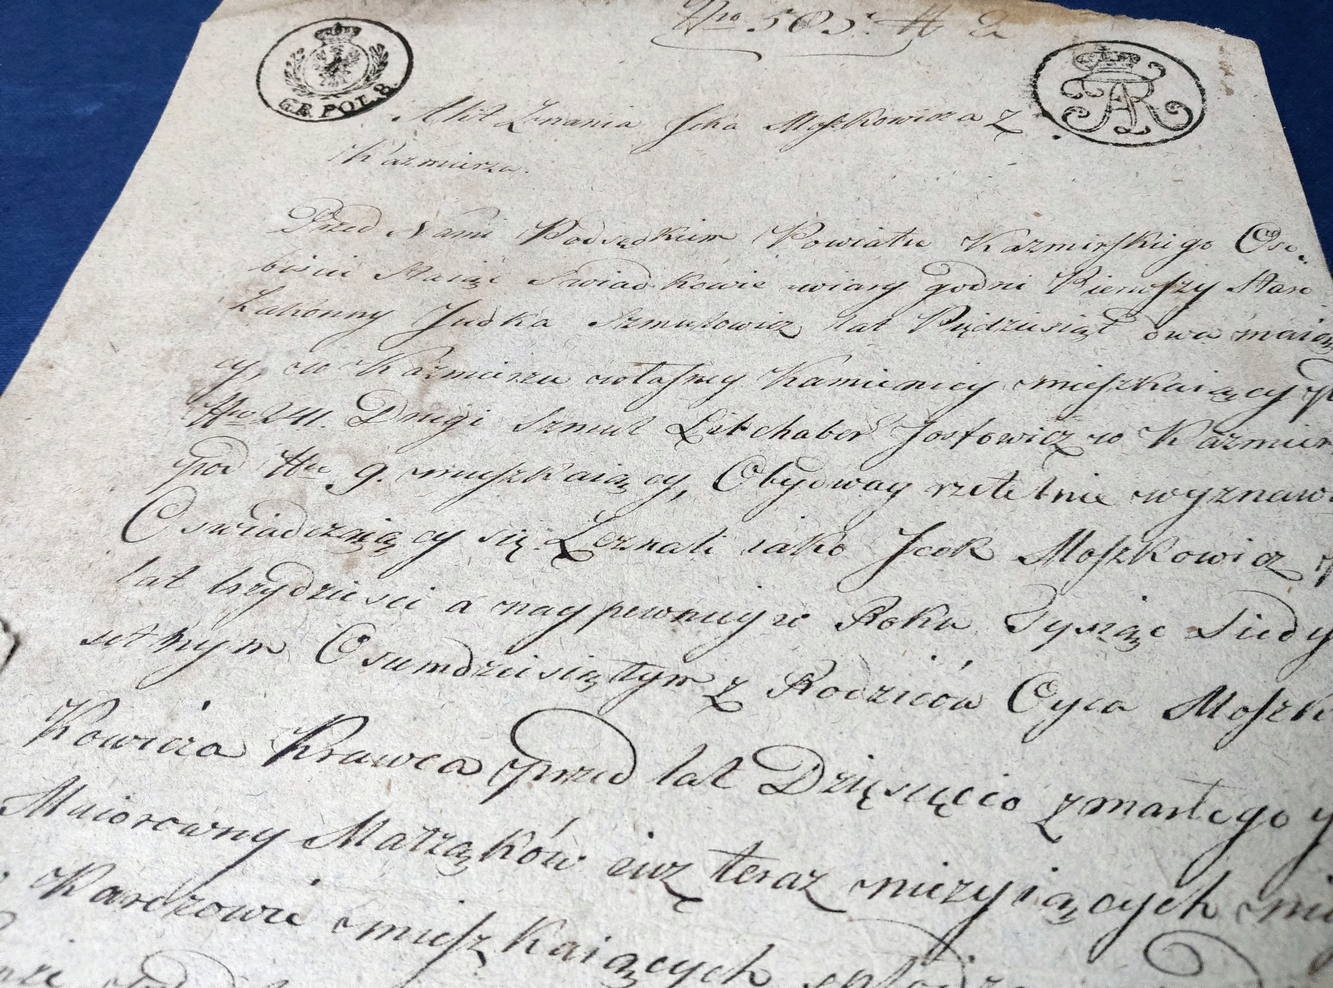 Nro 585. # 2
GR. POL. 8.
AR
Akt Zznania Icka Moszkowicza z
Kaźmierza.
Przed Nami Podsędkiem Powiatu Kaźmirskiego Oso-
biście Stając Swiadkowie wiary godni Pierwszy Staro
Zakonny Judka Szmulowicz lat Piędziesiąt dwa maiąc
cy, w Kaźmierzu własney Kamienicy mieszkaiący p
Nro VII. Drugi Szmul Litchaber Josfowicz w Kazmier
pod Nro 9. mieszkaiący, Obydway rzetelnie wyznaw
Oswiadczaiący się Zeznali iako Icek Moszkowicz
lat trzydzieści a naypewniey w Roku Tysząc Siedy
setnym Osiemdziesiątym z Rodziców Oyca Moszk
Kowicza Krawca przed lat Dziesięcio zmarłego y
Maiorowny Małżąków iuż teraz nieżyiących
Karczowie mieszkaiących